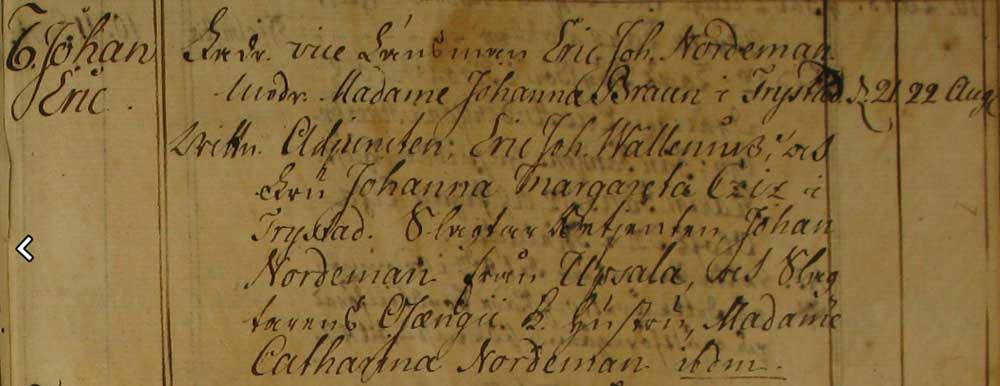 6. Johan
Eric.
Fadr. vice Länsman Eric Joh. Nordeman
Modr. Madame Johanna Braun i Trystad d. 21 22 Aug.
Vittn. Adjuncten, Eric Joh. Wallenius, och
Fru Johanna Margareta i
Trystad. Slagtar Betjenten, Johan
Nordeman från Upsala, och Slag
tarens Hustru, Madame
Catharina Nordeman ibdm.